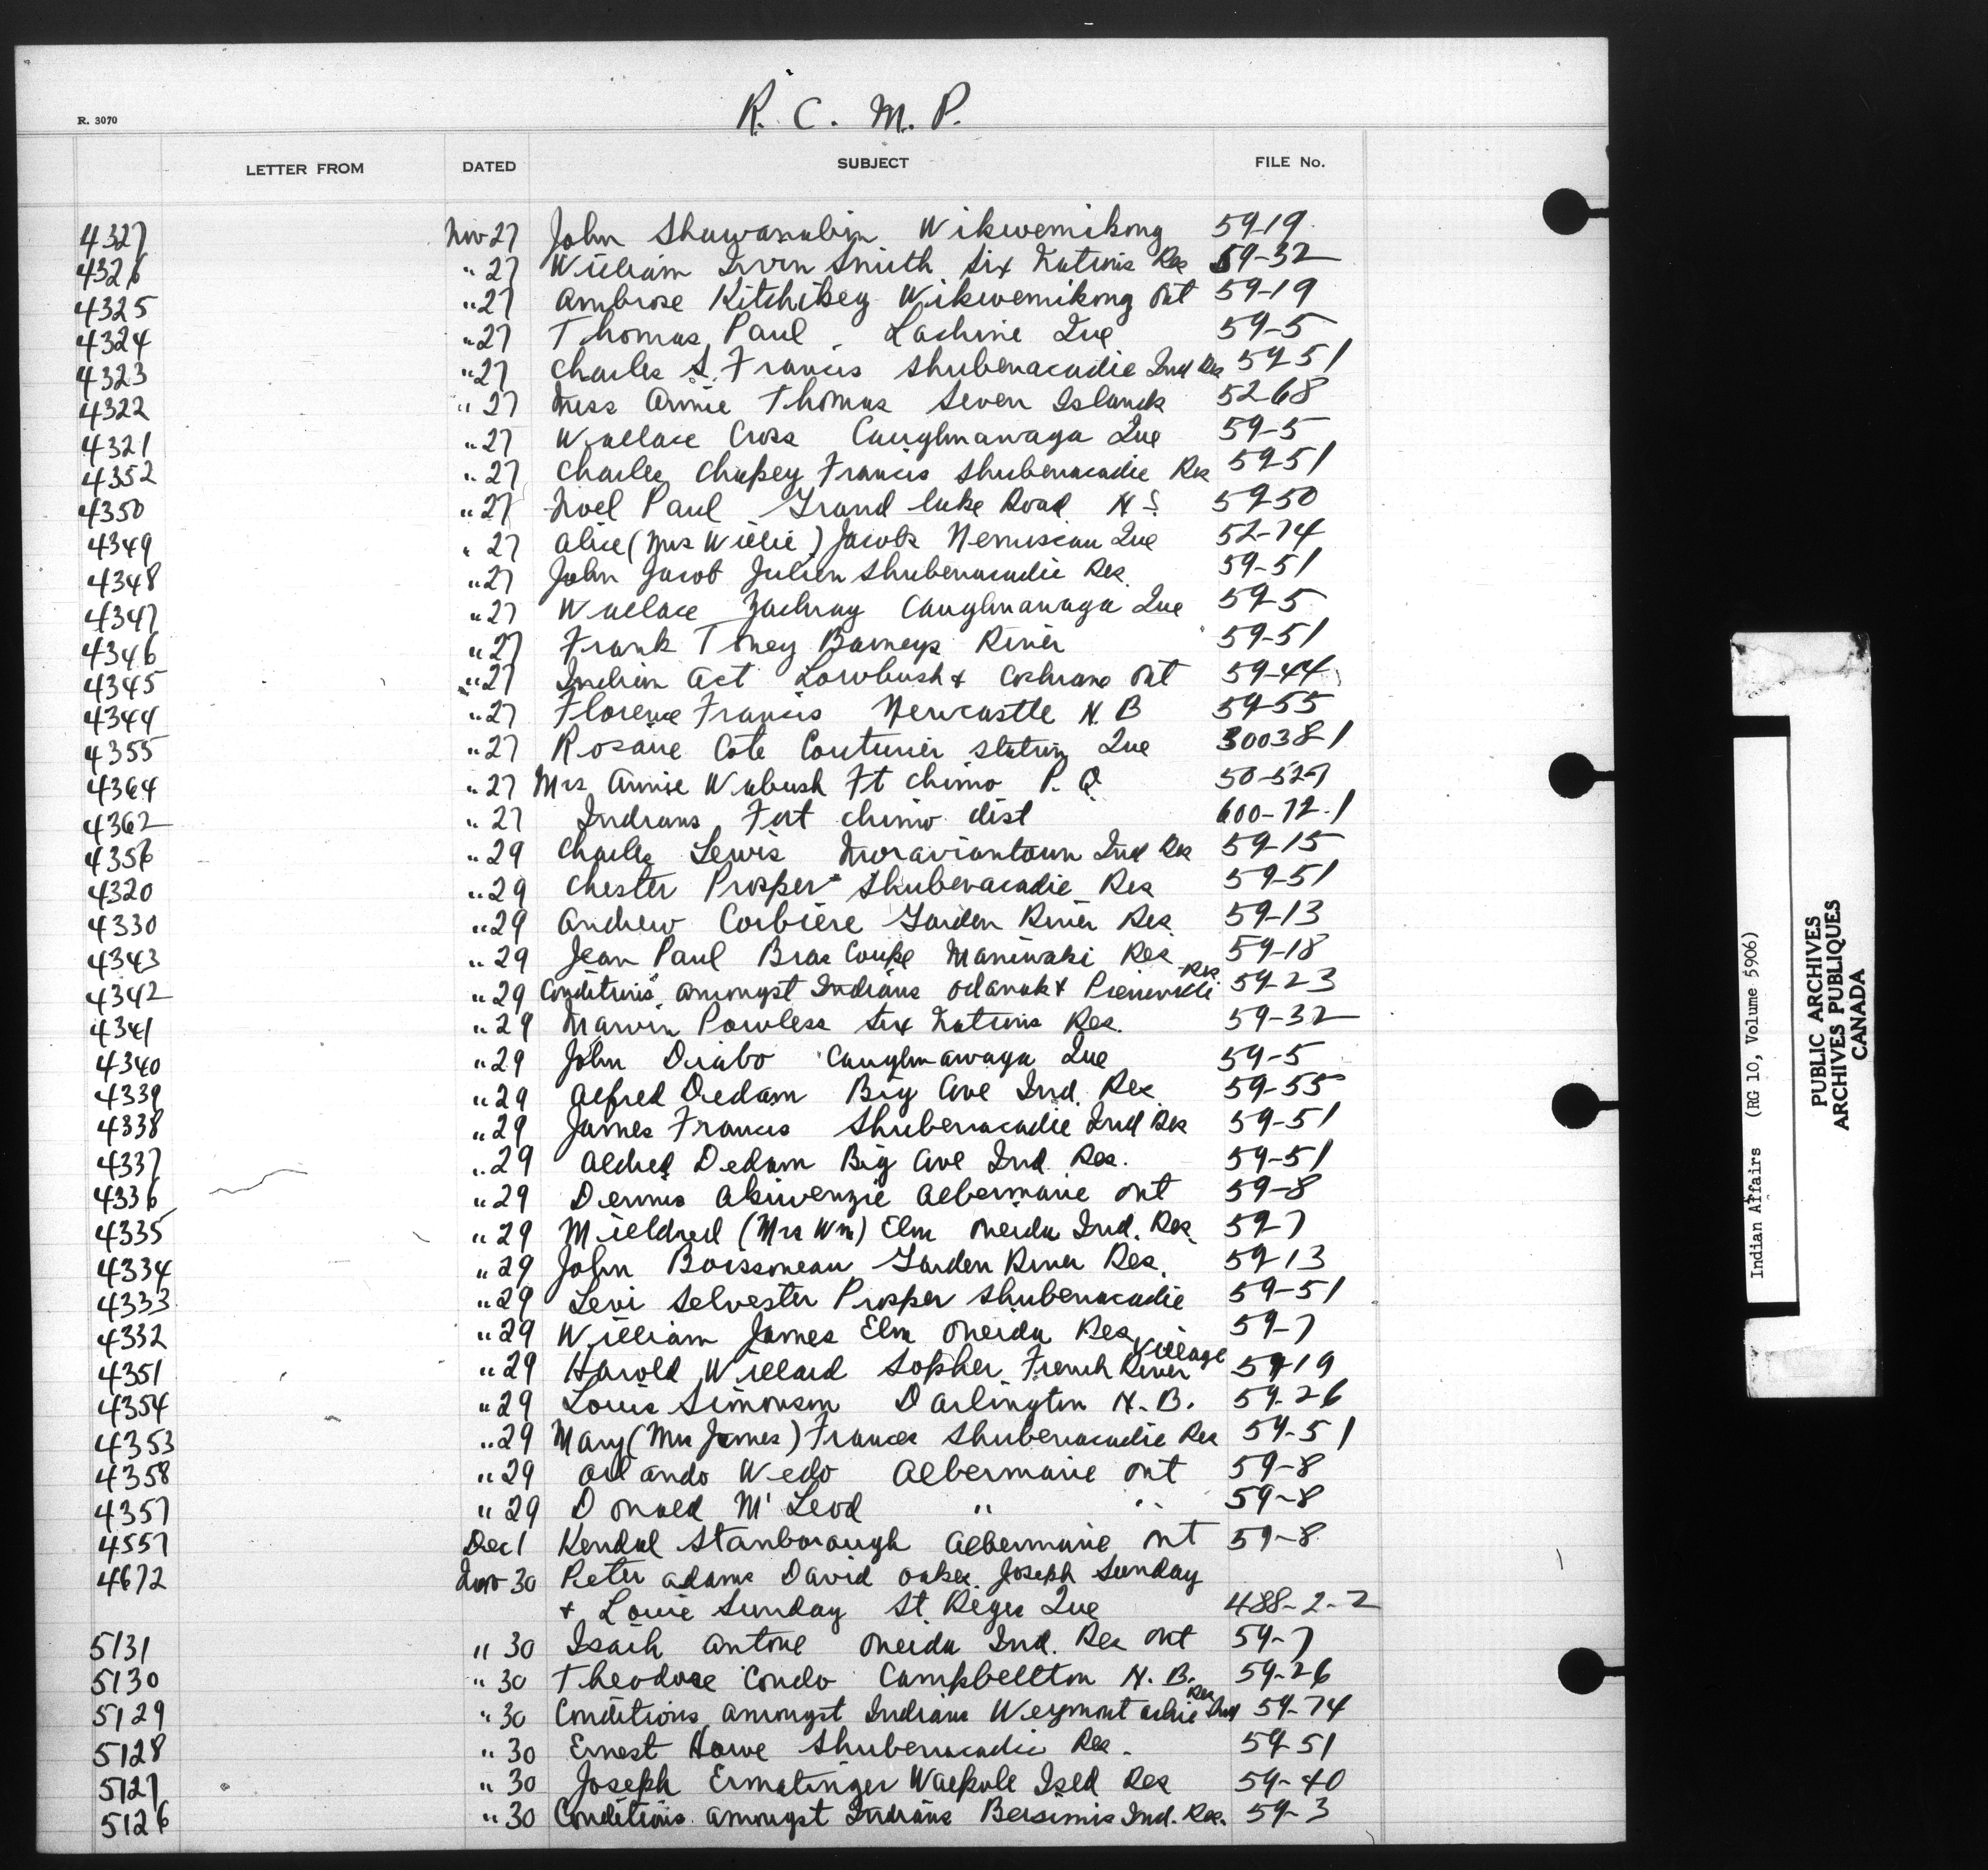 R. C. M. P.
R. 3070
LETTER FROM DATED SUBJECT FILE No.
4327 Nov 27 John Shawanabin Wikwemikong 59-19
4326 " 27 William Irvin Smith Six Nations Res 59-32
4325 " 27 Ambrose Kitchikey Wikwemikong Ont 59-19
4324 " 27 Thomas Paul Lachine Que 59-5
4323 " 27 Charles S. Francis Shubenacadie Ind Res 59-51
4322 " 27 Miss Annie Thomas Seven Islands 52-68
4321 " 27 Wallace Cross Caughnawaga Que 59-5
4352 " 27 Charles Francis Shubenacadie Res 59-51
4350 " 27 Noel Paul Grand lake Road N S 59-50
4349 " 27 Alice (Mrs Willie) Jacob Nemiscau Que 52-74
4348 " 27 John Jacob Julien Shubenacadie Res. 59-51
4347 " 27 Wallace Zachray Caughnawaga Que 59-5
4346 " 27 Frank Toney Barneys River 59-51
4345 " 27 Indian Act Lowbush & Cochrane Ont 59-44
4344 " 27 Florence Francis Newcastle N. B 59-55
4355 " 27 Rosane Cote Couturier station Que 30038-1
4364 " 27 Mrs Annie Wabush Ft Chimo P. Q 50-527
4362 " 27 Indians Fort Chimo dist 600-72-1
4356 " 29 Charles Lewis Moraviantown Ind Res 59-15
4320 " 29 Chester Prosper Shubenacadie Res 59-51
4330 " 29 Andrew Corbiere Garden River Res. 59-13
4343 " 29 Jean Paul Bras Coupe Maniwaki Res 59-18
4342 " 29 Conditions amongst Indians Odanak & Pierreville Res 59-23
4341 " 29 Marvin Powless Six Nations Res. 59-32
4340 " 29 John Diabo Caughnawaga Que 59-5
4339 " 29 Alfred Dedam Big Cove Ind. Res. 59-55
4338 " 29 James Francis Shubenacadie Ind Res 59-51
4337 " 29 Dedam Big Cove Ind. Res. 59-51
4336 " 29 Dennis Akiwenzie Albermarie Ont 59-8
4335 " 29 Mieldred (Mrs Wm) Elm Oneida Ind. Res. 59-7
4334 " 29 John Boissoneau Garden River Res. 59-13
4333 " 29 Levi Selvester Prosper Shubenacadie 59-51
4332 " 29 William James Elm Oneida Res 59-7
4351 " 29 Harold Willard Sopher French River Village 59-19
4354 " 29 Louis Simonson Darlington N. B. 59-26
4353 " 29 Mary (Mrs James) Frances Shubenacadie Res 59-51
4358 " 29 Orlando Wedo Albermarie Ont 59-8
4357 " 29 Donald McLeod " " 59-8
4557 Dec 1 Kendal Stanborough Albermarie Ont 59-8
4672 Nov 30 Peter Adams David Oakes Joseph Sunday
& Louie Sunday St. Regis Que 488-2-2
5131 " 30 Isaih Antone Oneida Ind. Res Ont 59-7
5130 " 30 Theodore Condo Campbellton N. B. 59-26
5129 " 30 Conditions amongst Indians Weymontachie Ind Res 59-74
5128 " 30 Ernest Howe Shubenacadie Res. 59-51
5127 " 30 Joseph Ermatinger Walpole Isld Res 59-40
5126 " 30 Conditions amongst Indians Bersimis Ind. Res. 59-3
Indian Affairs (RG 10, Volume 5906)
PUBLIC ARCHIVES
ARCHIVES PUBLIQUES
CANADA